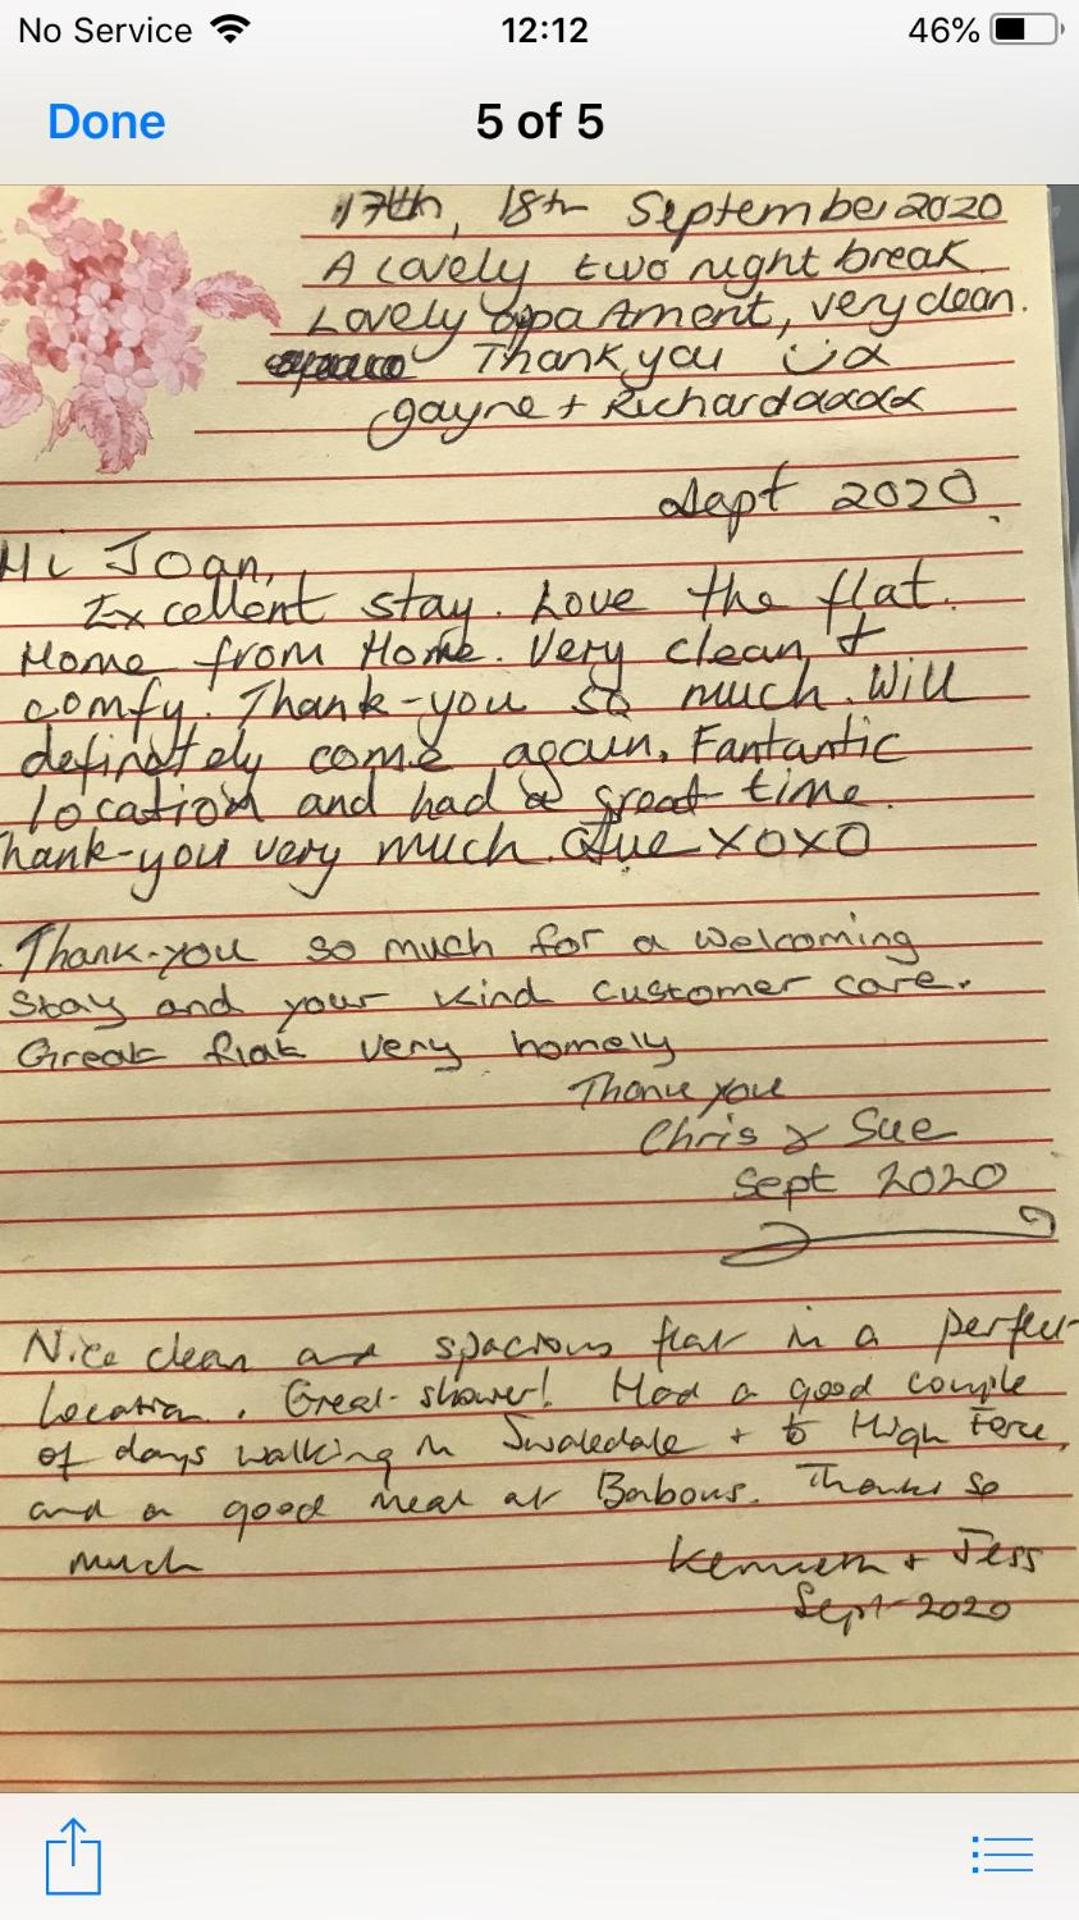 No Service 12:12 46%
Done 5 of 5
17th, 18th September 2020
A lovely two night break
Lovely appartment, very clean.
Thank you
Gayne + Richard xxxx
Sept 2020
Hi Joan,
Excellent stay. Love the flat.
Home from Home. Very clean +
comfy. Thank-you so much. Will
definately come again. Fantantic
location and had a great time.
Thank-you very much. Sue XOXO
Thank-you so much for a welcoming
stay and your kind customer care.
Great flat very homely
Thank you
Chris & Sue
Sept 2020
Nice clean and spacious flat in a perfect
location. Great shower! Had a good couple
of days walking in Swaledale + to High Force,
and a good meal at Babous. Thanks so
much
Kenneth + Jess
Sept 2020